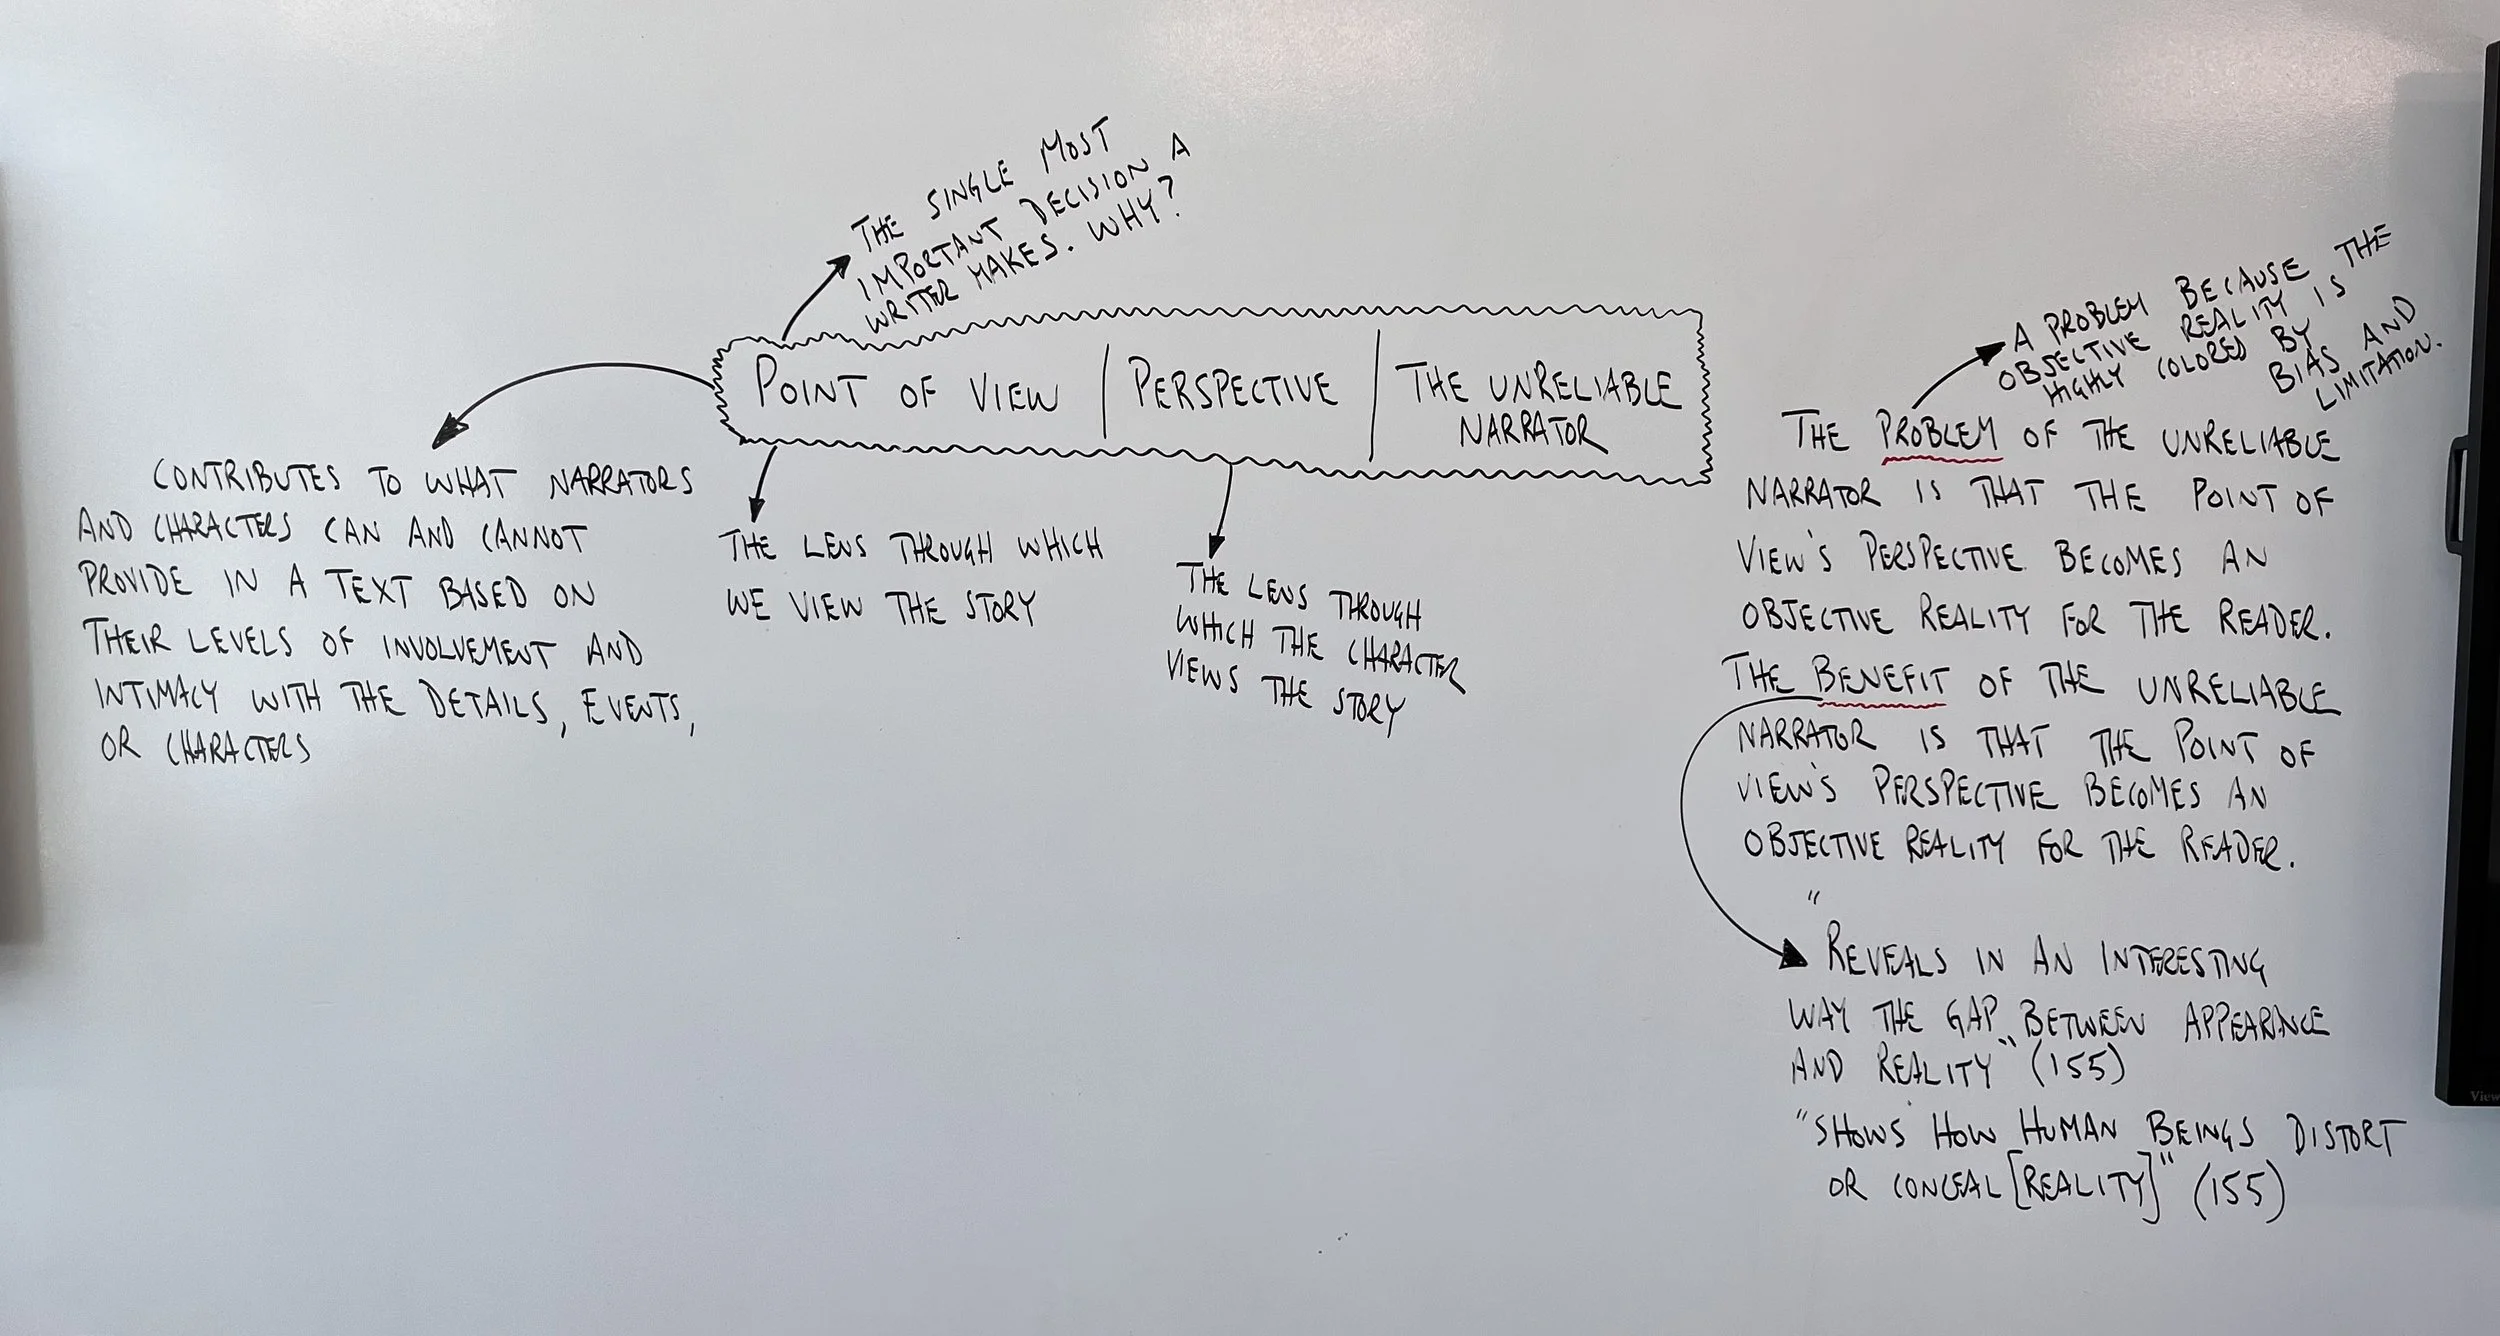 THE SINGLE MOST
IMPORTANT DECISION A
WRITER MAKES. WHY?
POINT OF VIEW
PERSPECTIVE
THE UNRELIABLE
NARRATOR
CONTRIBUTES TO WHAT NARRATORS
AND CHARACTERS CAN AND CANNOT
PROVIDE IN A TEXT BASED ON
THEIR LEVELS OF INVOLVEMENT AND
INTIMACY WITH THE DETAILS, EVENTS,
OR CHARACTERS
THE LENS THROUGH WHICH
WE VIEW THE STORY
THE LENS THROUGH
WHICH THE CHARACTER
VIEWS THE STORY
A PROBLEM BECAUSE THE
OBJECTIVE REALITY IS
HIGHLY COLORED BY
BIAS AND
LIMITATION.
THE PROBLEM OF THE UNRELIABLE
NARRATOR IS THAT THE POINT OF
VIEW'S PERSPECTIVE BECOMES AN
OBJECTIVE REALITY FOR THE READER.
THE BENEFIT OF THE UNRELIABLE
NARRATOR IS THAT THE POINT OF
VIEW'S PERSPECTIVE BECOMES AN
OBJECTIVE REALITY FOR THE READER.
"REVEALS IN AN INTERESTING
WAY THE GAP BETWEEN APPEARANCE
AND REALITY" (155)
"SHOWS HOW HUMAN BEINGS DISTORT
OR CONCEAL [REALITY]" (155)
View